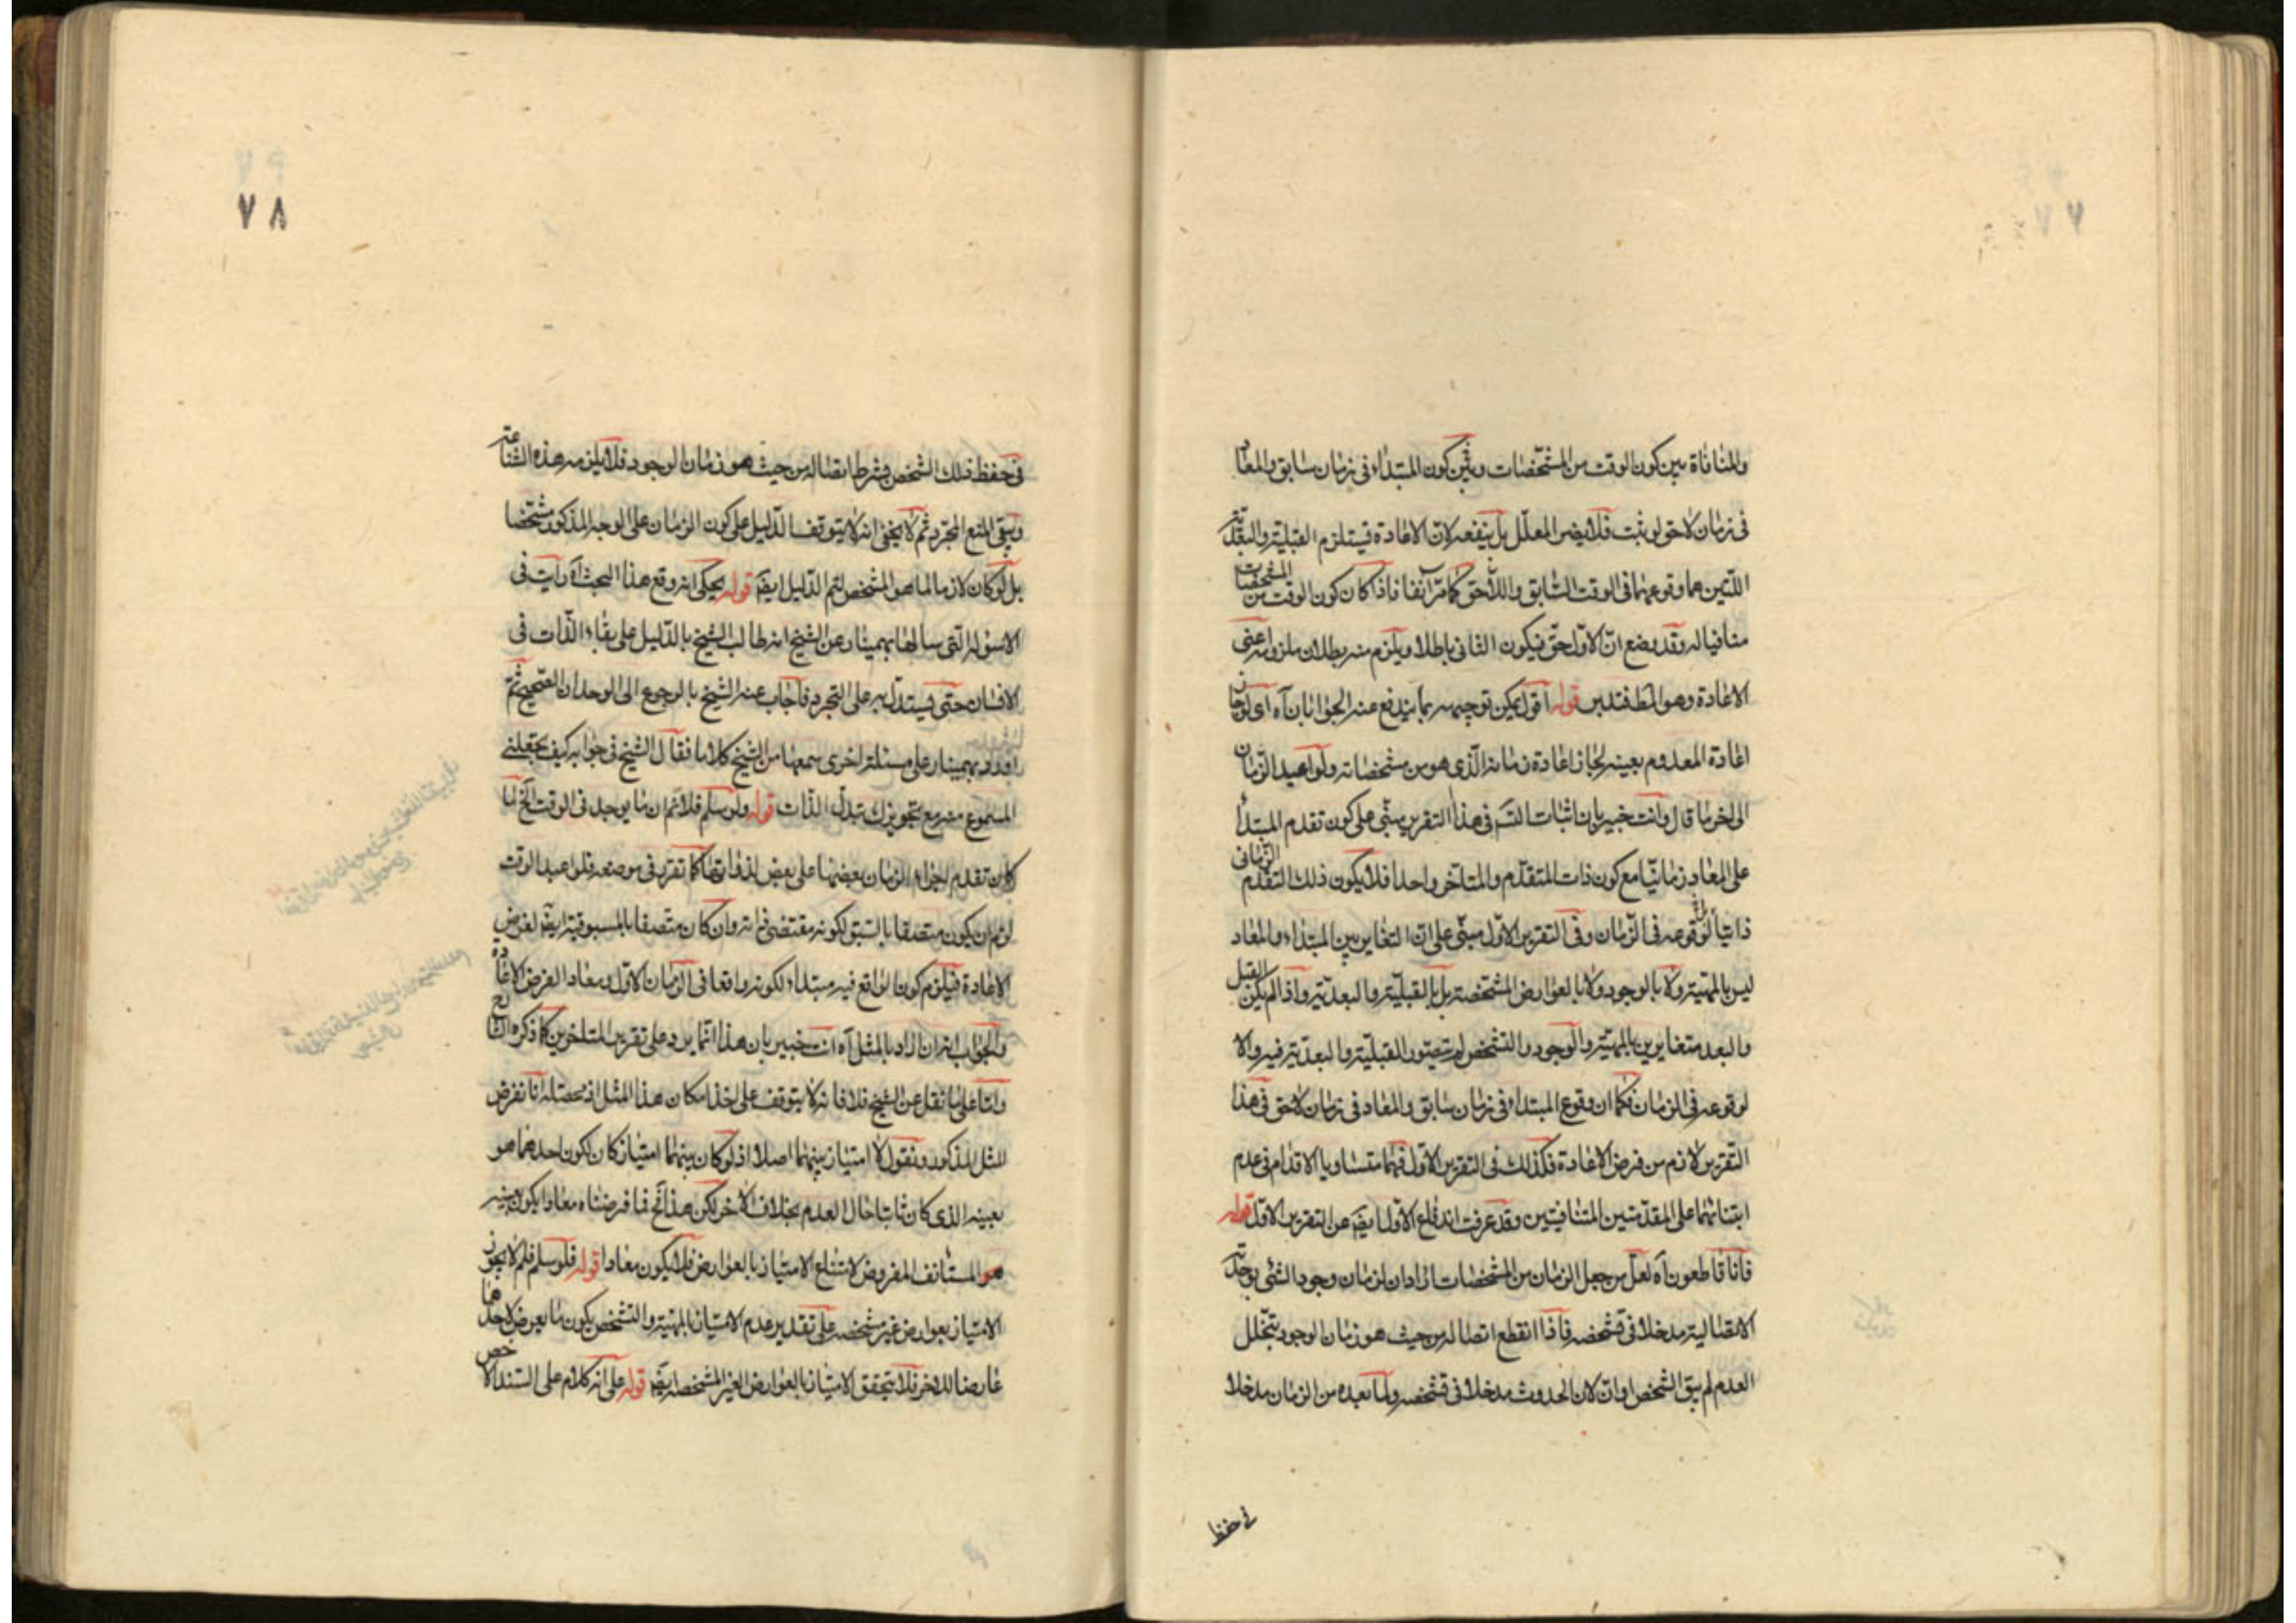 ٧٧
والمنافاة بين كون الوقت من المشخصات وبين كون المبتداء فى زمان سابق والمعاد
فى زمان لاحق لو ثبت فلا يضر المعلل بل ينفعه لان الاعادة فيستلزم القبلية والبعدية
اللتين هما وقوعهما فى الوقت السابق واللاحق كما مر آنفا فاذا كان كون الوقت من المشخصات
منافيا له وقد وضع ان الاول حق فيكون الثانى باطلا ويلزم منه بطلان ملزومه اعنى
الاعادة وهو المط فتدبر قوله اقول يمكن توجيهه بما يندفع عنه الجوابان آه اى لو جاز
اعادة المعدوم بعينه لجاز اعادة زمانه الذى هو من مشخصاته ولو اعيد الزمان
الى اخر ما قال وانت خبير بان اثبات التسم فى هذا التقرير يبنى على كون تقدم المبتدأ
على المعاد زمانيا مع كون ذات المتقدم والمتاخر واحدا فلا يكون ذلك التقدم الزمانى
ذاتيا لوقوعه فى الزمان وفى التقرير الاول مبنى على ان التغاير بين المبتداء والمعاد
ليس بالمهية ولا بالوجود ولا بالعوارض المشخصة بل بالقبلية والبعدية واذا لم يكن القبل
والبعد متغايرين بالمهية والوجود والتشخص لم يتصور القبلية والبعدية فيه والا
لوقوعه فى الزمان فكما ان وقوع المبتداء فى زمان سابق والمعاد فى زمان لاحق فى هذا
التقرير لازم من فرض الاعادة فكذلك فى التقرير الاول فهما متساويا الاقدام فى عدم
ابتنائهما على المقدمتين المتنافيتين وقد عرفت اندفاع الاول ايضا عن التقرير الاول قوله
فانا قاطعون آه لعل من جعل الزمان من المشخصات اراد ان لزمان وجود الشئ بوحدته
الاتصالية مدخلا فى تشخصه فاذا انقطع اتصاله من حيث هو زمان الوجود بتخلل
العدم لم يبق الشخص او ان لان الحدوث مدخلا فى تشخصه ولما بعده من الزمان مدخلا
فى حفظ
٧٨
فى حفظ ذلك الشخص بشرط اتصاله من حيث هو زمان الوجود فلا يلزمه هذه الشناعة
ويبقى المنع المجرد ثم لا يخفى انه لا يتوقف الدليل على كون الزمان على الوجه المذكور مشخصا
بل لو كان لازما لما هو المشخص لتم الدليل ايضا قوله يحكى انه وقع هذا البحث آه رايت فى
الاسولة التى سالها بهمنيار عن الشيخ انه طالب الشيخ بالدليل على بقاء الذات فى
الانسان حتى فيستدل به على التجرد فاجاب عنه الشيخ بالرجوع الى الوجدان الصحيح ثم
اورد بهمنيار على مسئلة اخرى سمعها من الشيخ كلاما فقال الشيخ فى جوابه كيف يجعلنى
المسموع منه مع تجويزك تبدل الذات قوله ولو سلم فلانم ان ما يوجد فى الوقت الخ لما
كان تقدم اجزاء الزمان بعضها على بعض لذواتها كما تقرر فى موضعه فلو اعيد الوقت
لزم ان يكون متصفا بالسبق لكونه مقتضى ذاته وان كان متصفا بالمسبوقية ايضا لفرض
الاعادة فيلزم كون الواقع فيه مبتداء لكونه واقعا فى الزمان الاول ومعادا لفرض الاعادة
والجواب انه ان اراد بالمثل آه انت خبير بان هذا انما يرد على تقرير المتاخرين كما ذكره الشارح
واما على ما نقل عن الشيخ فلا فانه لا يتوقف على اخذ امكان هذا المثل اذ محصله انا نفرض
المثل المذكور ونقول لا امتياز بينهما اصلا اذ لو كان بينهما امتياز كان لكون احدهما هو
بعينه الذى كان ثابتا حال العدم بخلاف الاخر لكن هذا مح فما فرضناه معادا يكون بعينه
هو المستانف المفروض لامتناع الامتياز بالعوارض فلا يكون معادا قوله فلو سلم فلم لا يجوز
الامتياز بعوارض غير مشخصة على تقدير عدم الامتياز بالمهية والتشخص يكون ما يعرض لاحدهما
عارضا للاخر فلا يتحقق الامتياز بالعوارض الغير المشخصة ايضا قوله على انه كلام على السند الاخص